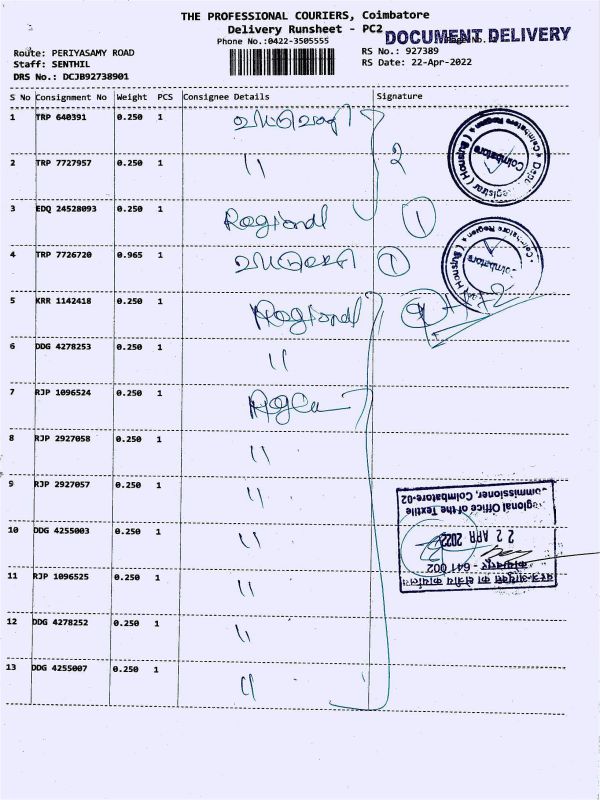 THE PROFESSIONAL COURIERS, Coimbatore
Delivery Runsheet - PC2
DOCUMENT DELIVERY
Phone No.:0422-3505555
Route: PERIYASAMY ROAD
RS No.: 927389
Staff: SENTHIL
RS Date: 22-Apr-2022
DRS No.: DCJB92738901
S No Consignment No Weight PCS Consignee Details Signature
1 TRP 640391 0.250 1
2 TRP 7727957 0.250 1 " 2
3 EDQ 24528093 0.250 1 Regional 1
4 TRP 7726720 0.965 1 1
5 KRR 1142418 0.250 1 Regional
6 DDG 4278253 0.250 1 "
7 RJP 1096524 0.250 1
8 RJP 2927058 0.250 1 "
9 RJP 2927057 0.250 1 "
10 DDG 4255003 0.250 1 "
11 RJP 1096525 0.250 1 "
12 DDG 4278252 0.250 1 "
13 DDG 4255007 0.250 1 "
Coimbatore
Coimbatore Region
Coimbatore
Coimbatore Region
वस्त्र-आयुक्त का क्षेत्रीय कार्यालय
कोयम्बत्तूर - 641 002
22 APR 2022
Regional Office of the Textile
Commissioner, Coimbatore-02